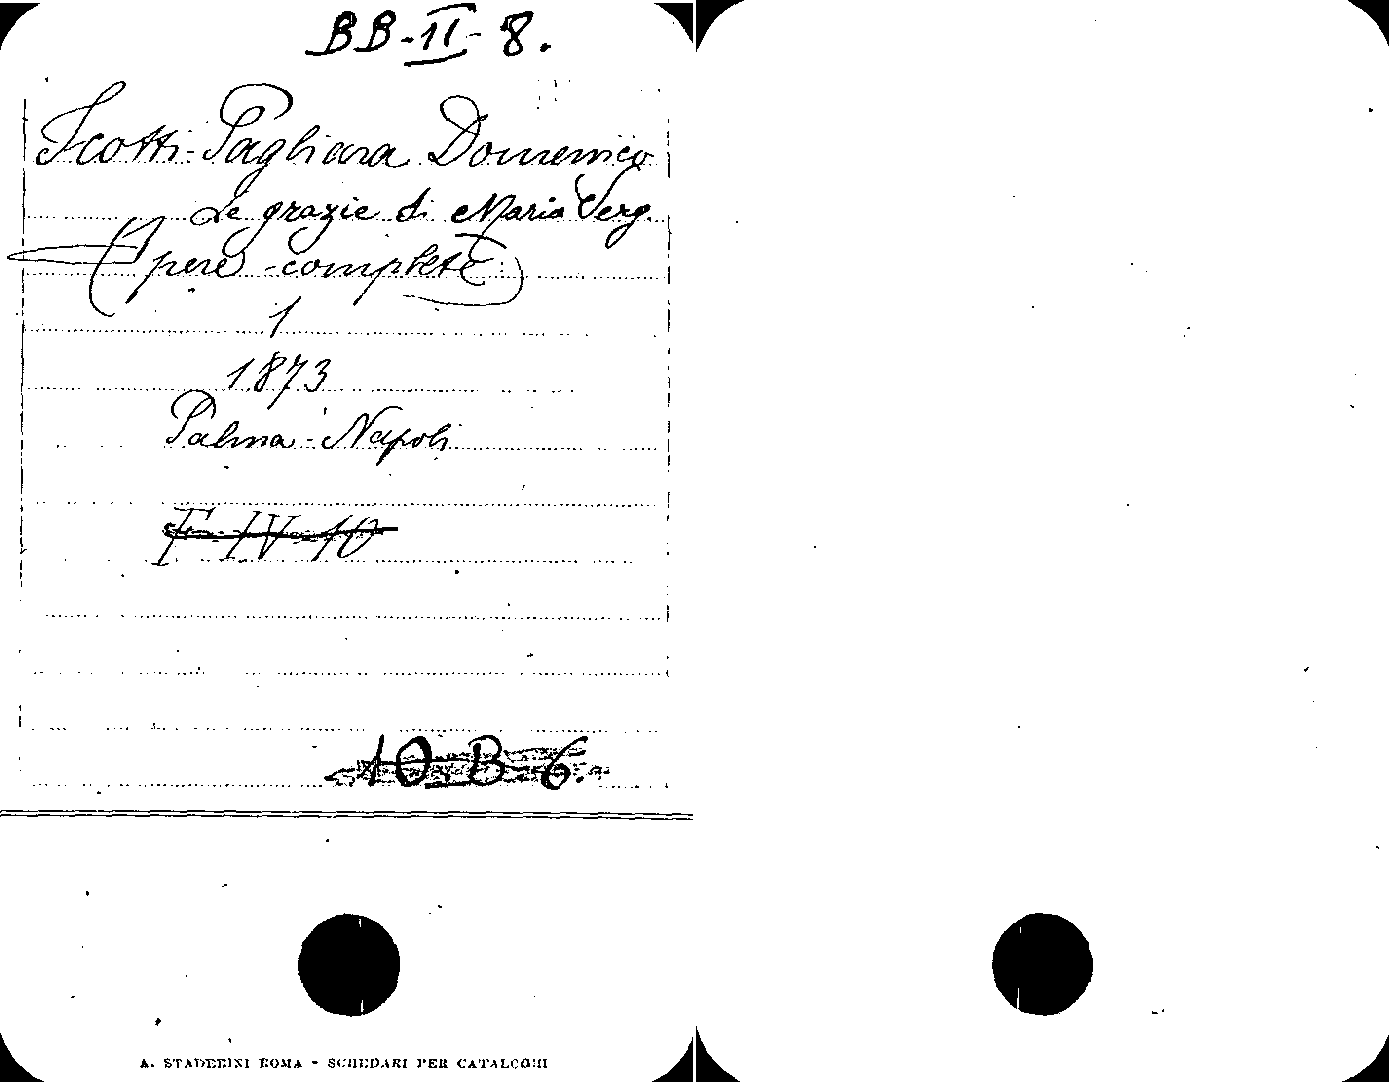 BB-II-8.
Scotti-Pagliara Domenico
Le grazie di Maria Verg.
Opere complete
1
1873
Palma-Napoli
F-IV-10
10.B-6.
A. STADERINI ROMA - SCHEDARI PER CATALOGHI